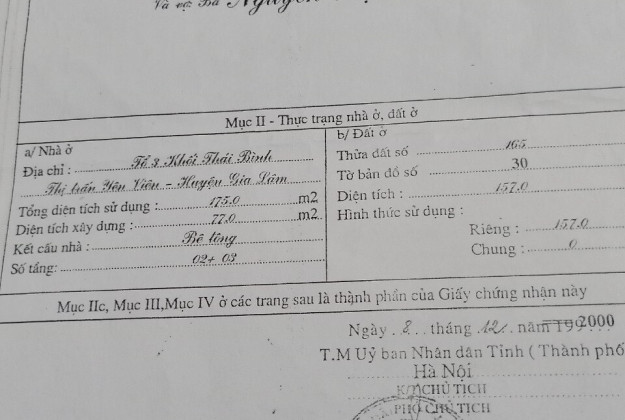 Và vợ Bà Nguyễn
Mục II - Thực trạng nhà ở, đất ở
a/ Nhà ở
Địa chỉ : Tổ 3 Khối Thái Bình
Thị trấn Yên Viên - Huyện Gia Lâm
Tổng diện tích sử dụng : 175.0 m2
Diện tích xây dựng : 77.0 m2
Kết cấu nhà : Bê tông
Số tầng: 02+ 03
b/ Đất ở
Thửa đất số 165
Tờ bản đồ số 30
Diện tích : 157.0
Hình thức sử dụng :
Riêng : 157.0
Chung : 0
Mục IIc, Mục III,Mục IV ở các trang sau là thành phần của Giấy chứng nhận này
Ngày . 8 . . tháng . 12 . . năm 199 2000
T.M Uỷ ban Nhân dân Tỉnh ( Thành phố
Hà Nội
K/T CHỦ TỊCH
PHÓ CHỦ TỊCH